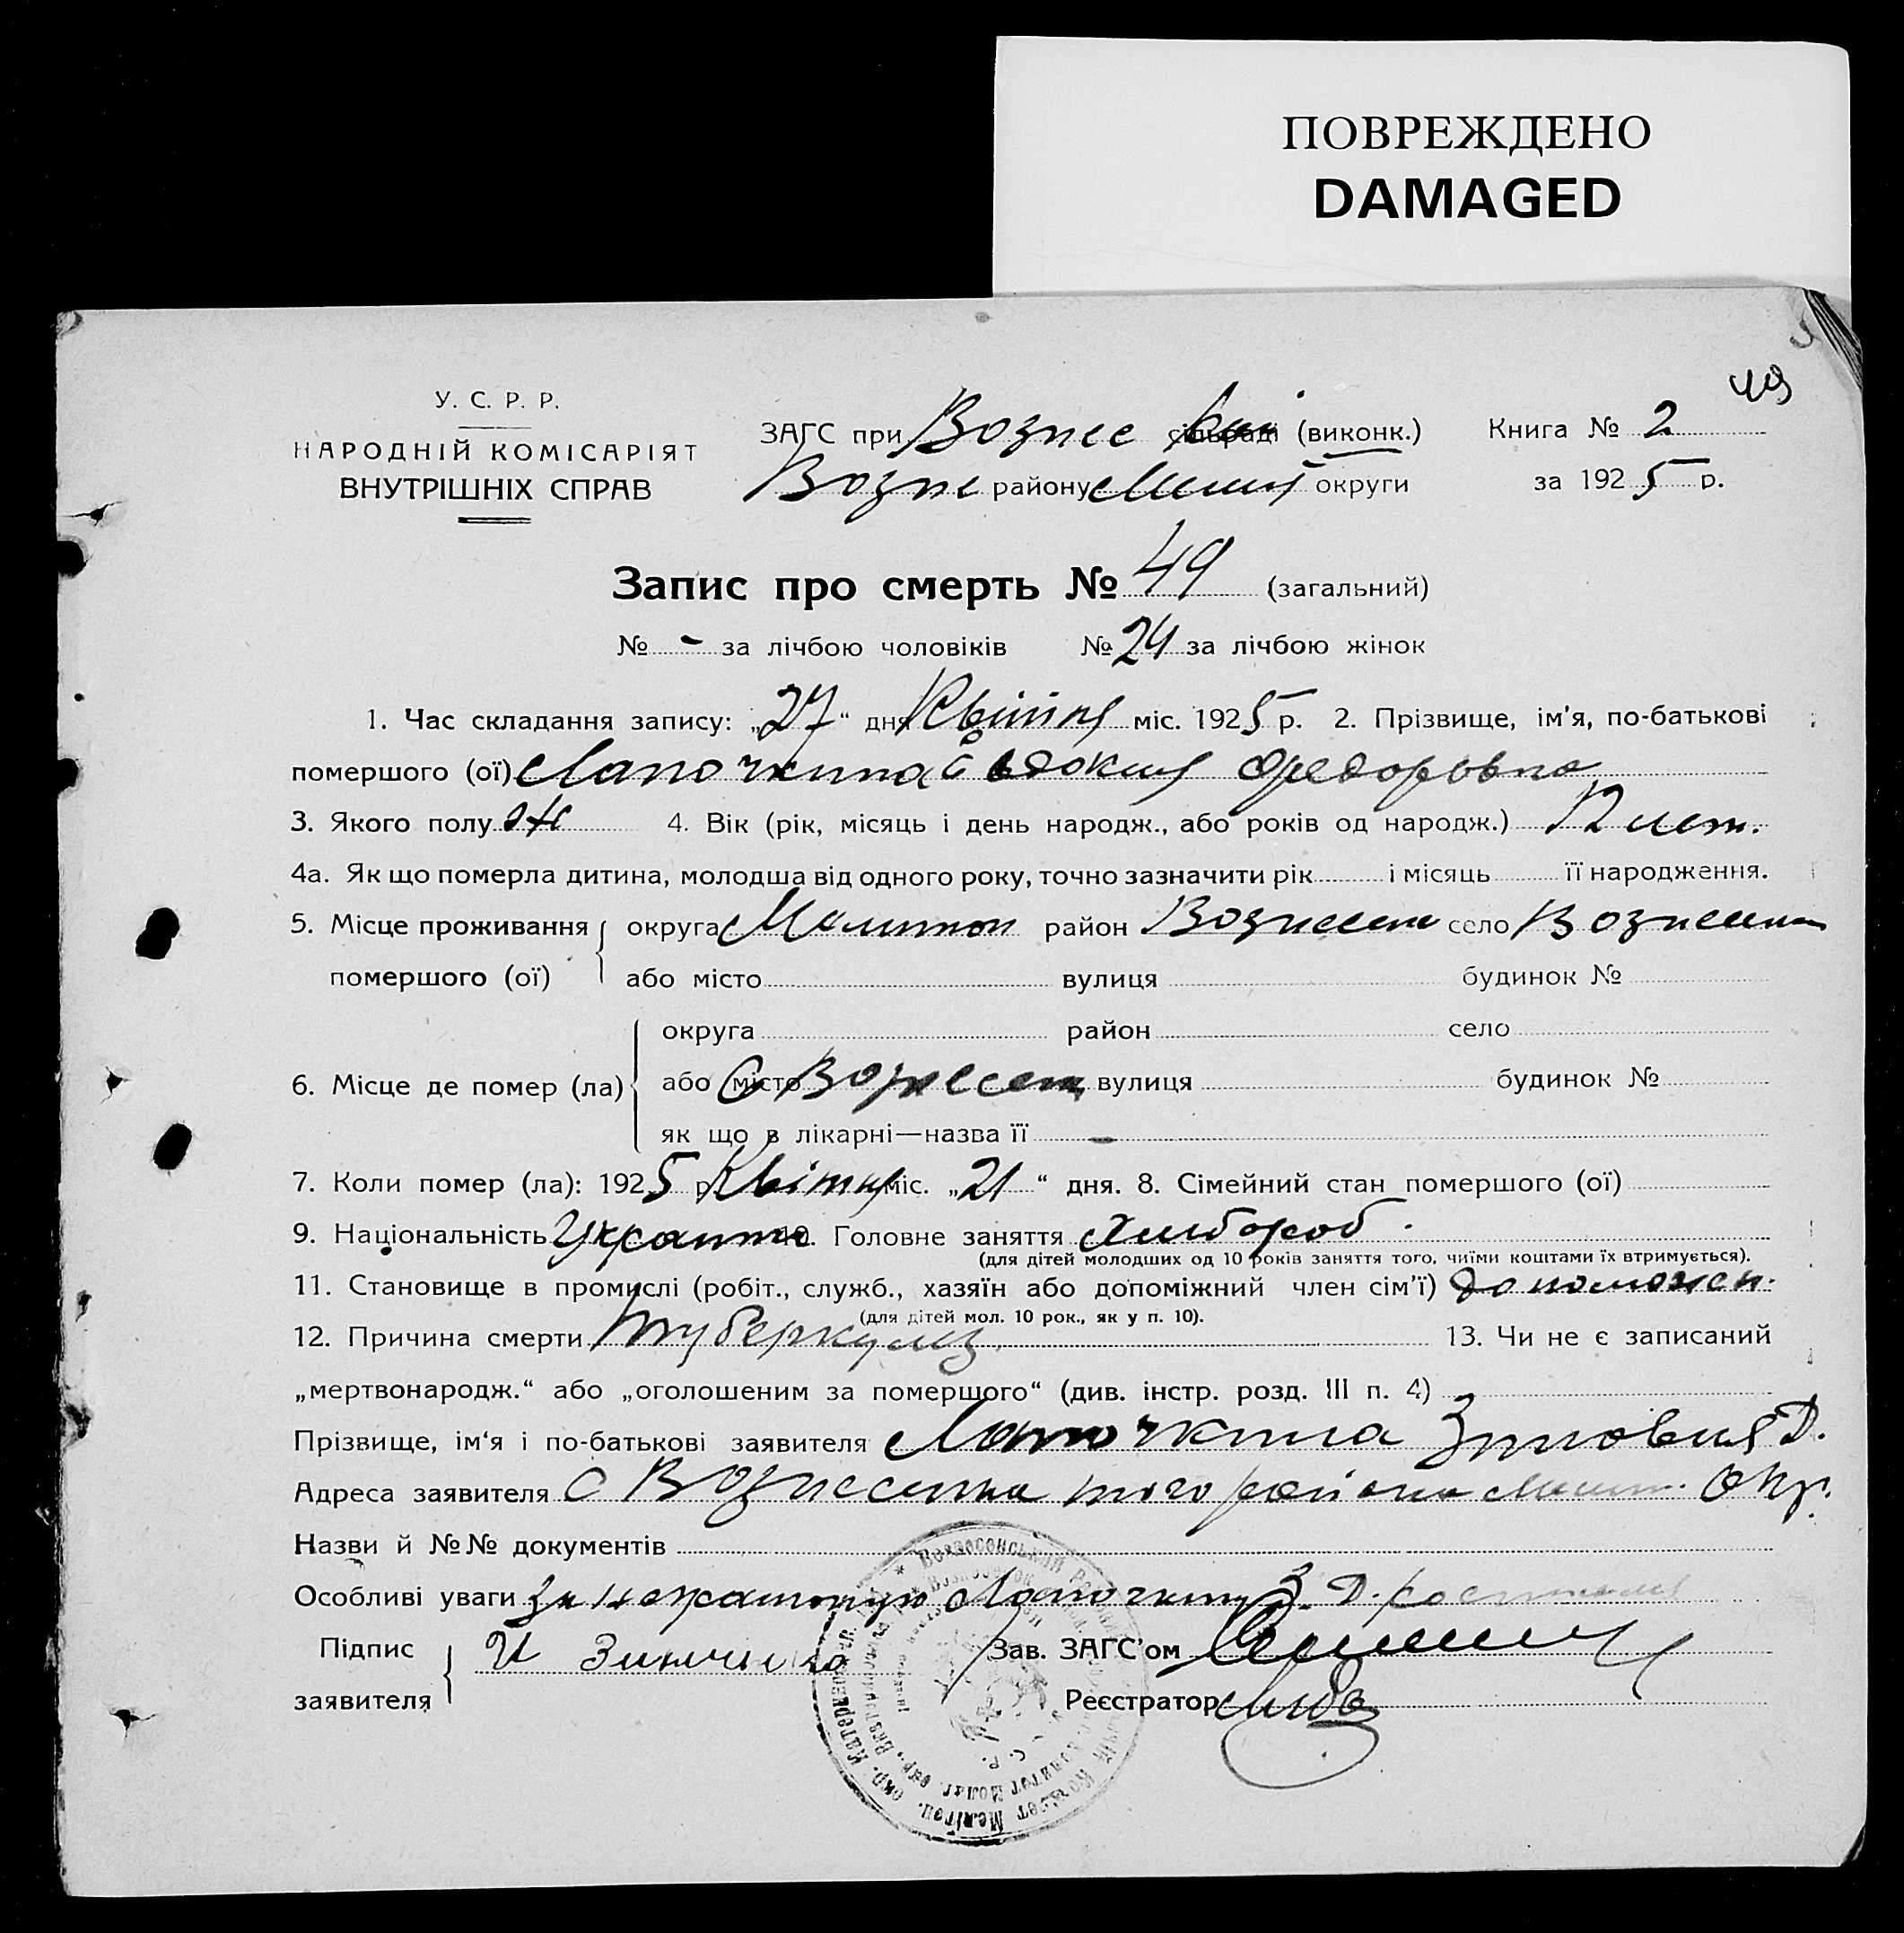 ПОВРЕЖДЕНО
DAMAGED
49
У. С. Р. Р.
НАРОДНІЙ КОМІСАРІЯТ
ВНУТРІШНІХ СПРАВ
ЗАГС при Вознес сільраді (виконк.)
Возне району округи
Книга № 2
за 1925 р.
Запис про смерть № 49 (загальний)
№ - за лічбою чоловіків № 24 за лічбою жінок
1. Час складання запису: „27“ дня Квітня міс. 1925 р. 2. Прізвище, ім'я, по-батькові
помершого (ої) Лапочкина Евдокия Федоровна
3. Якого полу ж 4. Вік (рік, місяць і день народж., або років од народж.) 12 лет.
4а. Як що померла дитина, молодша від одного року, точно зазначити рік і місяць її народження.
5. Місце проживання округа Мелитоп район Вознесен село Вознесенка
помершого (ої) або місто вулиця будинок №
округа район село
6. Місце де помер (ла) або місто С Вознесен вулиця будинок №
як що в лікарні—назва її -
7. Коли помер (ла): 1925 р. Квітня міс. „21“ дня. 8. Сімейний стан помершого (ої)
9. Національність 10. Головне заняття Хлибороб.
(для дітей молодших од 10 років заняття того, чиїми коштами їх втримується).
11. Становище в промислі (робіт., служб., хазяїн або допоміжний член сім'ї)
(для дітей мол. 10 рок., як у п. 10).
12. Причина смерти Туберкулез 13. Чи не є записаний
„мертвонародж.“ або „оголошеним за померщого“ (див. інстр. розд. III п. 4)
Прізвище, ім‘я і по-батькові заявителя Лапочкина Зиновия Д.
Адреса заявителя С Вознесенка того района Мелит. Окр.
Назви й №№ документів
Особливі уваги За неграмотную Лапочкину З. Д.
Підпис
заявителя
Зав. ЗАГС'ом
Реєстратор